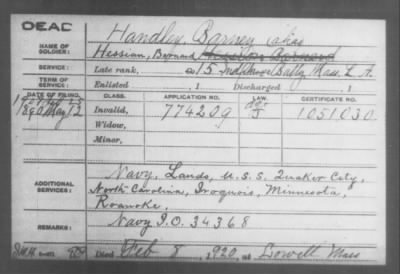 OEAC
Handley, Barney (alias
NAME OF SOLDIER: Hessian, Bernard
SERVICE: Late rank, 15 Indp Batty Mass. L. A.
TERM OF SERVICE: Enlisted , 1 Discharged , 1
DATE OF FILING. CLASS. APPLICATION NO. LAW. CERTIFICATE NO.
1890 May 12 Invalid, 774209 J 1051030
Widow,
Minor,
Navy, Lands, U.S.S. Quaker City,
ADDITIONAL SERVICES: North Carolina, Iroquois, Minnesota,
Roanoke,
REMARKS: Navy I.O. 34368
Died Feb 8, 1920, at Lowell Mass